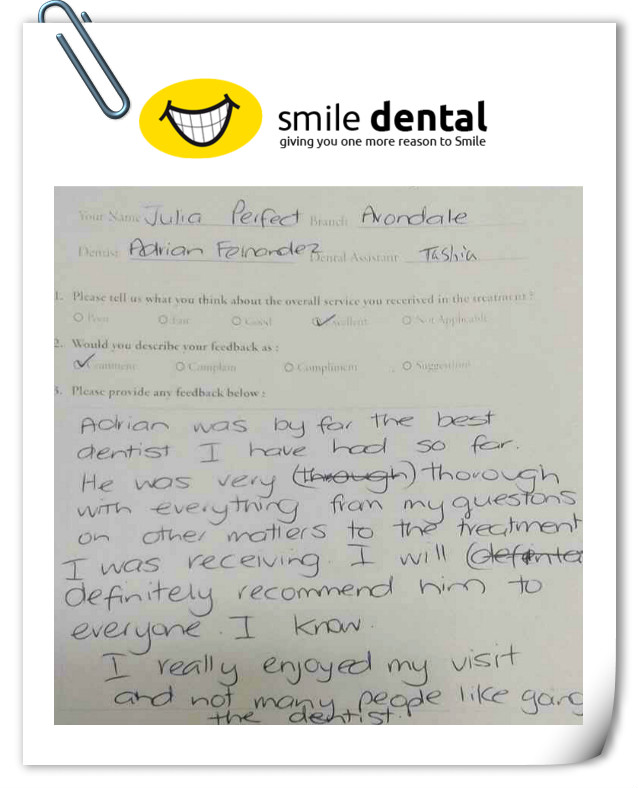 smile dental
giving you one more reason to Smile
Your Name Julia Perfect Branch Avondale
Dentist Adrian Fernandez Dental Assistant Tashia
1. Please tell us what you think about the overall service you recerived in the treatment ?
Poor Fair Good Excellent Not Applicable
2. Would you describe your feedback as :
Comment Complain Compliment Suggestion
3. Please provide any feedback below :
Adrian was by far the best
dentist I have had so far.
He was very (through) thorough
with everything from my questons
on other matters to the treatment
I was receiving. I will (definte
definitely recommend him to
everyone. I know.
I really enjoyed my visit
and not many people like going
the dentist.